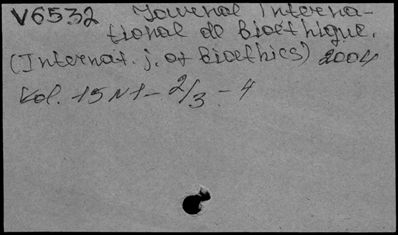 V6532 Journal Interna-
tional de Bioethique.
(Internat. j. of Bioethics) 2004
Vol. 15 N1 - 2/3 - 4